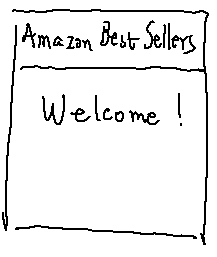 Amazon Best Sellers
Welcome !